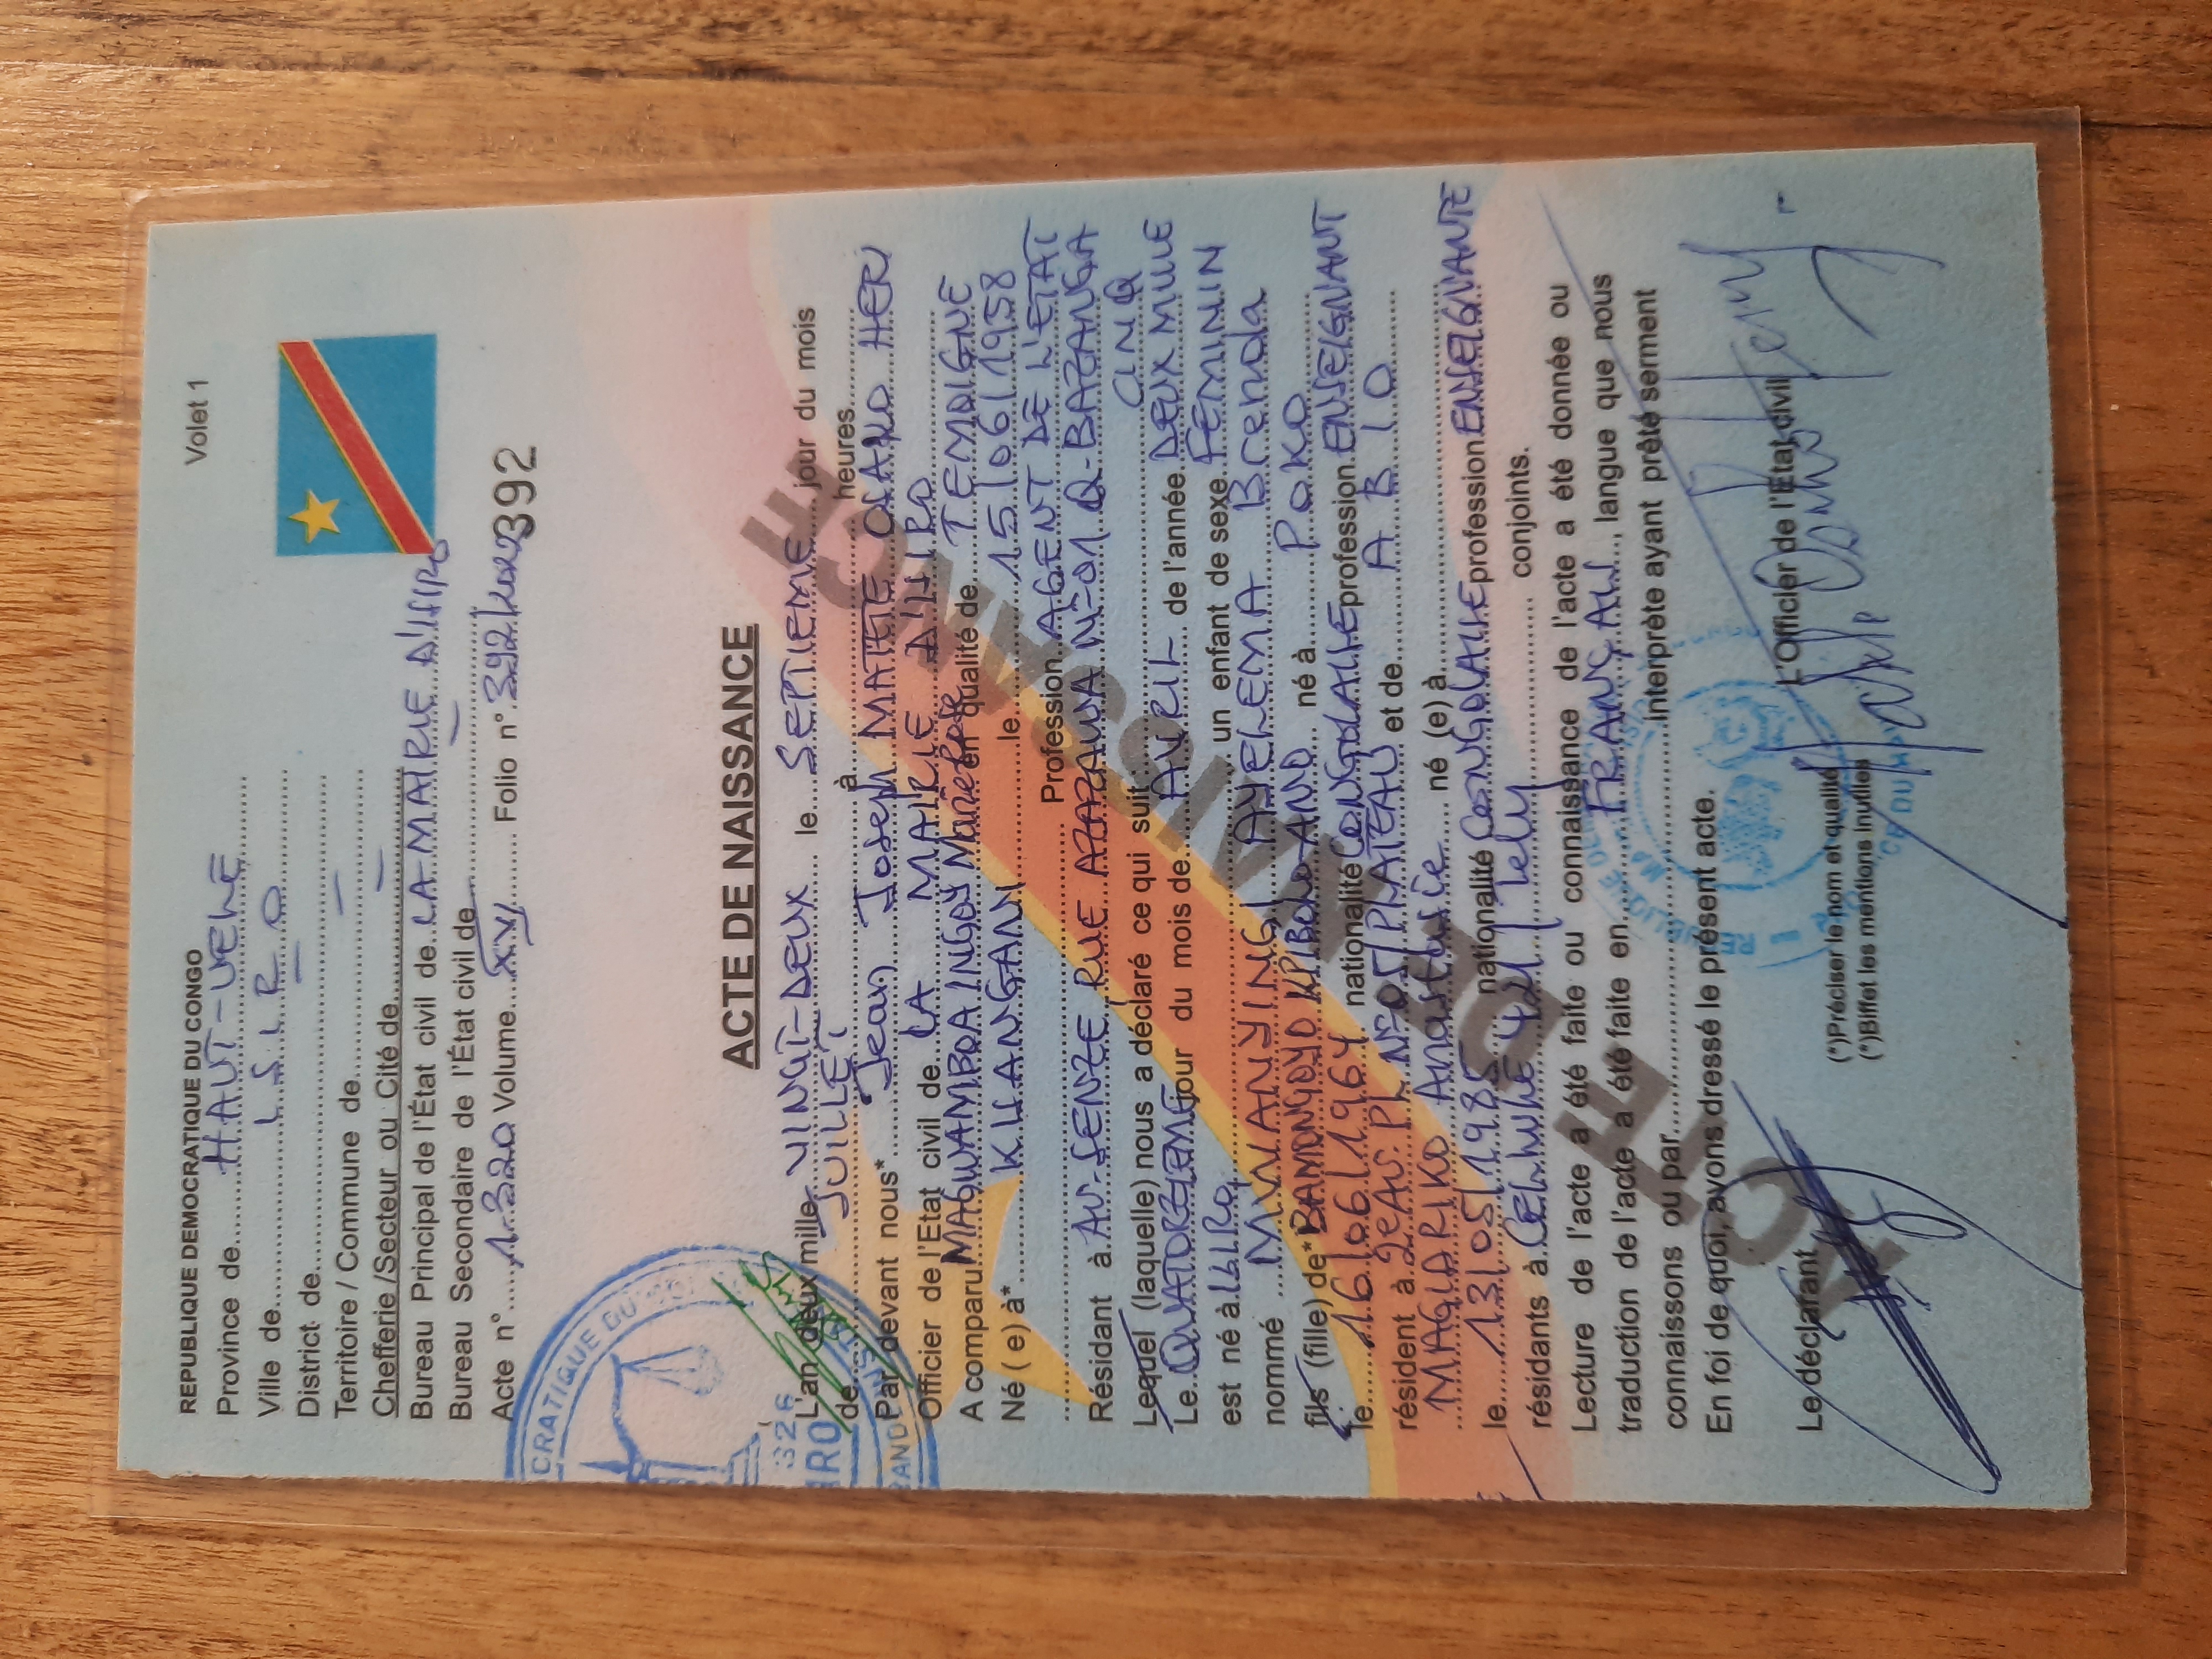 REPUBLIQUE DEMOCRATIQUE DU CONGO
Volet 1
Province de HAUT-UELE
Ville de ISIRO
District de —
Territoire / Commune de —
Chefferie /Secteur ou Cité de —
Bureau Principal de l'État civil de LA MAIRIE D'ISIRO
Bureau Secondaire de l'État civil de —
Acte n° 1.320 Volume XVI Folio n° 392/2022 392
CRATIQUE DU
ACTE DE NAISSANCE
L'an deux mille VINGT-DEUX le SEPTIEME jour du mois
de JUILLET à heures
Par devant nous* Jean Joseph MATETE OSAKO HERI
Officier de l'Etat civil de LA MAIRIE D'ISIRO
A comparu MAGWAMBOA INGOY Marie Rose en qualité de TEMOIGNE
Né ( e) à* le 15/06/1958
Profession AGENT DE L'ETAT
Résidant à AV-SENZE, RUE AZAZAWA N=01 Q-BAZANGA
Lequel (laquelle) nous a déclaré ce qui suit : CINQ
Le QUATORZIEME jour du mois de AVRIL de l'année DEUX MILLE
est né à ISIRO, un enfant de sexe FEMININ
nommé MWANYINGI AYELEMA Brenda
fils (fille) de* BAMONGOYO KPIBOLO-ANO né à POKO
le 16/06/1964 nationalité CONGOLAISE profession ENSEIGNANT
résident à 2e AV. PL N=05/PLATEAU et de ABIO
MAGIARIKO Anastasie né (e) à
le 13/05/1985 nationalité CONGOLAISE profession ENSEIGNANTE
résidants à CELLULE 421 / Tely conjoints.
Lecture de l'acte a été faite ou connaissance de l'acte a été donnée ou
traduction de l'acte a été faite en FRANÇAIS, langue que nous
connaissons ou par interprète ayant prêté serment
En foi de quoi, avons dressé le présent acte.
Le déclarant
L'Officier de l'Etat civil
(*)Préciser le nom et qualité
(*)Biffet les mentions inutiles
ACTE DE NAISSANCE